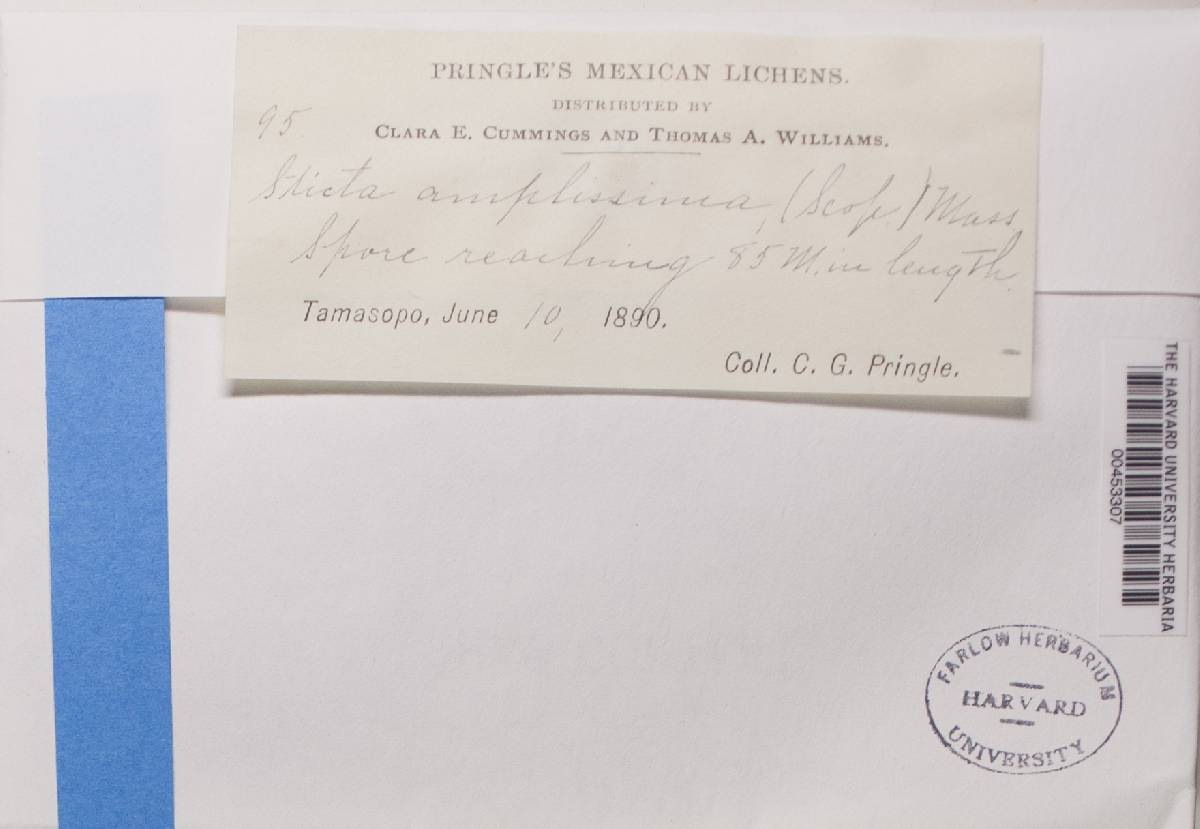 PRINGLE'S MEXICAN LICHENS.
DISTRIBUTED BY
95
CLARA E. CUMMINGS AND THOMAS A. WILLIAMS.
Sticta amplissima, (Scop.) Mass
Spore reaching 85 M. in length.
Tamasopo, June 10, 1890.
Coll. C. G. Pringle.
THE HARVARD UNIVERSITY HERBARIA
00453307
FARLOW HERBARIUM
HARVARD
UNIVERSITY